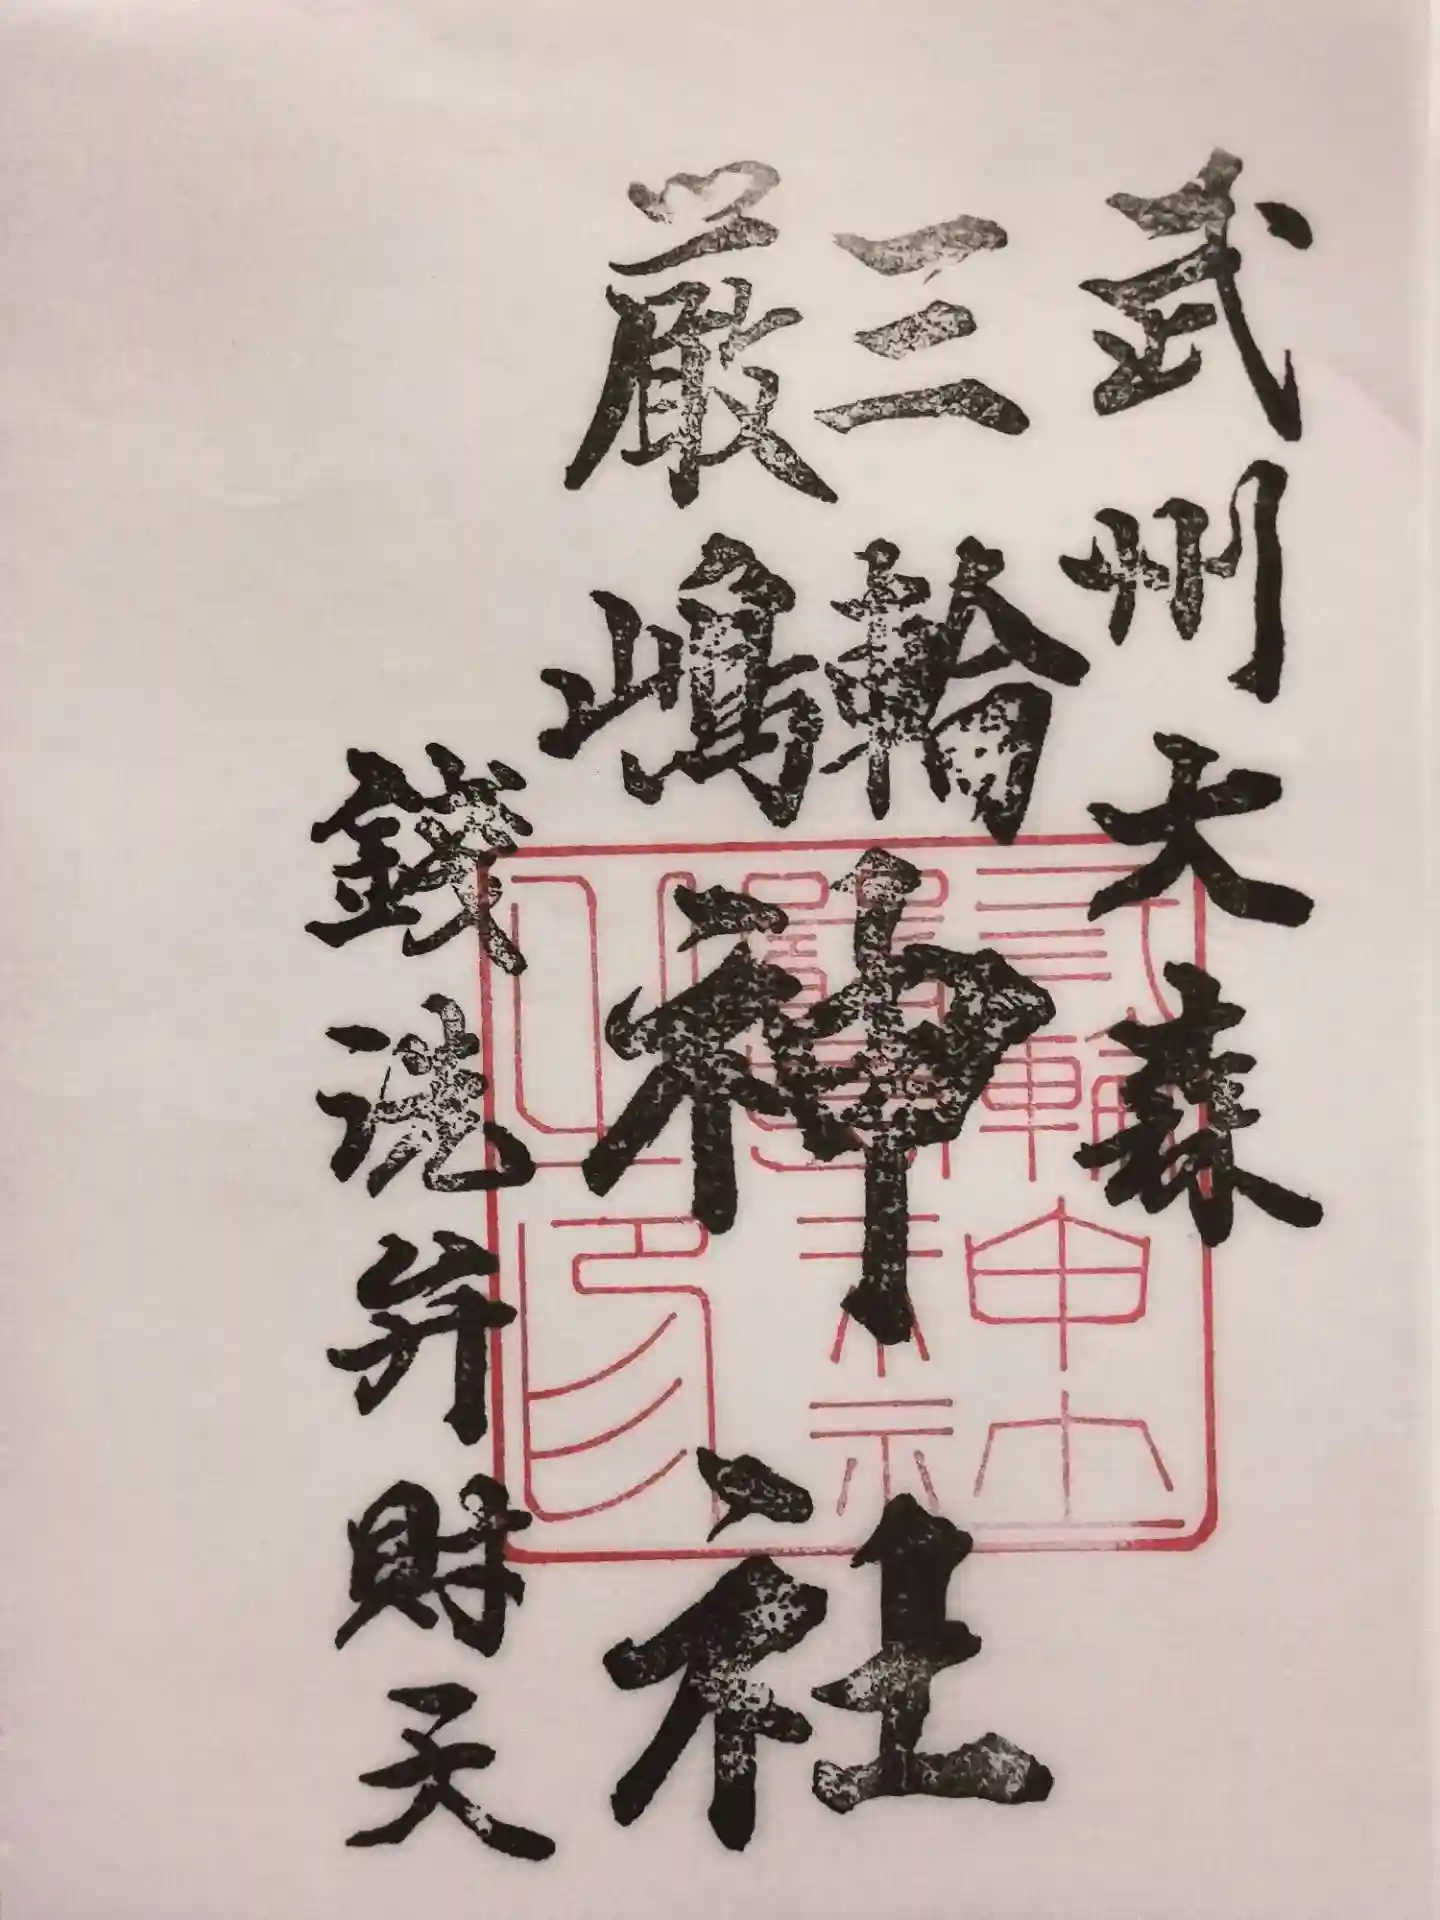 武州大森
三輪
厳嶋
神社
錢洗弁財天
神社
之印